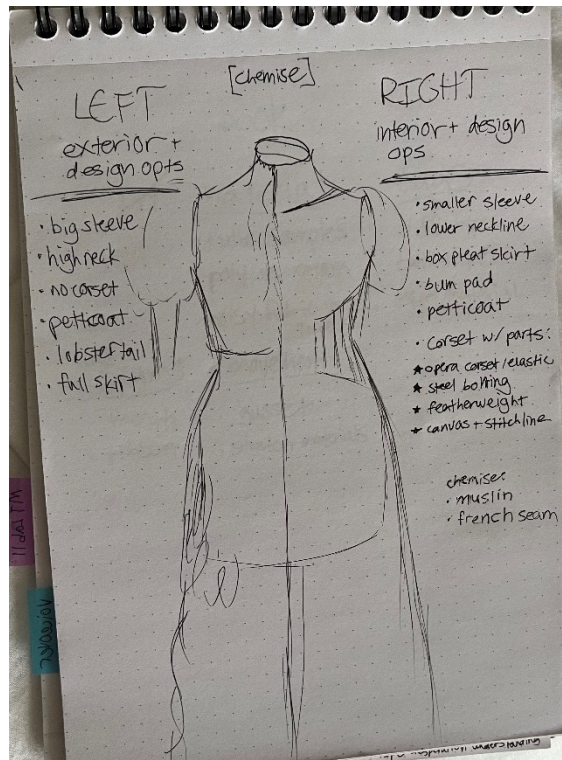 [chemise]
LEFT
exterior +
design opts
• big sleeve
• high neck
• no corset
• petticoat
• lobster tail
• full skirt
RIGHT
interior + design
ops
• smaller sleeve
• lower neckline
• box pleat skirt
• bum pad
• petticoat
• corset w/ parts:
★ opera corset/elastic
★ steel
★ featherweight
★ canvas + stitchline
chemise:
• muslin
• french seam